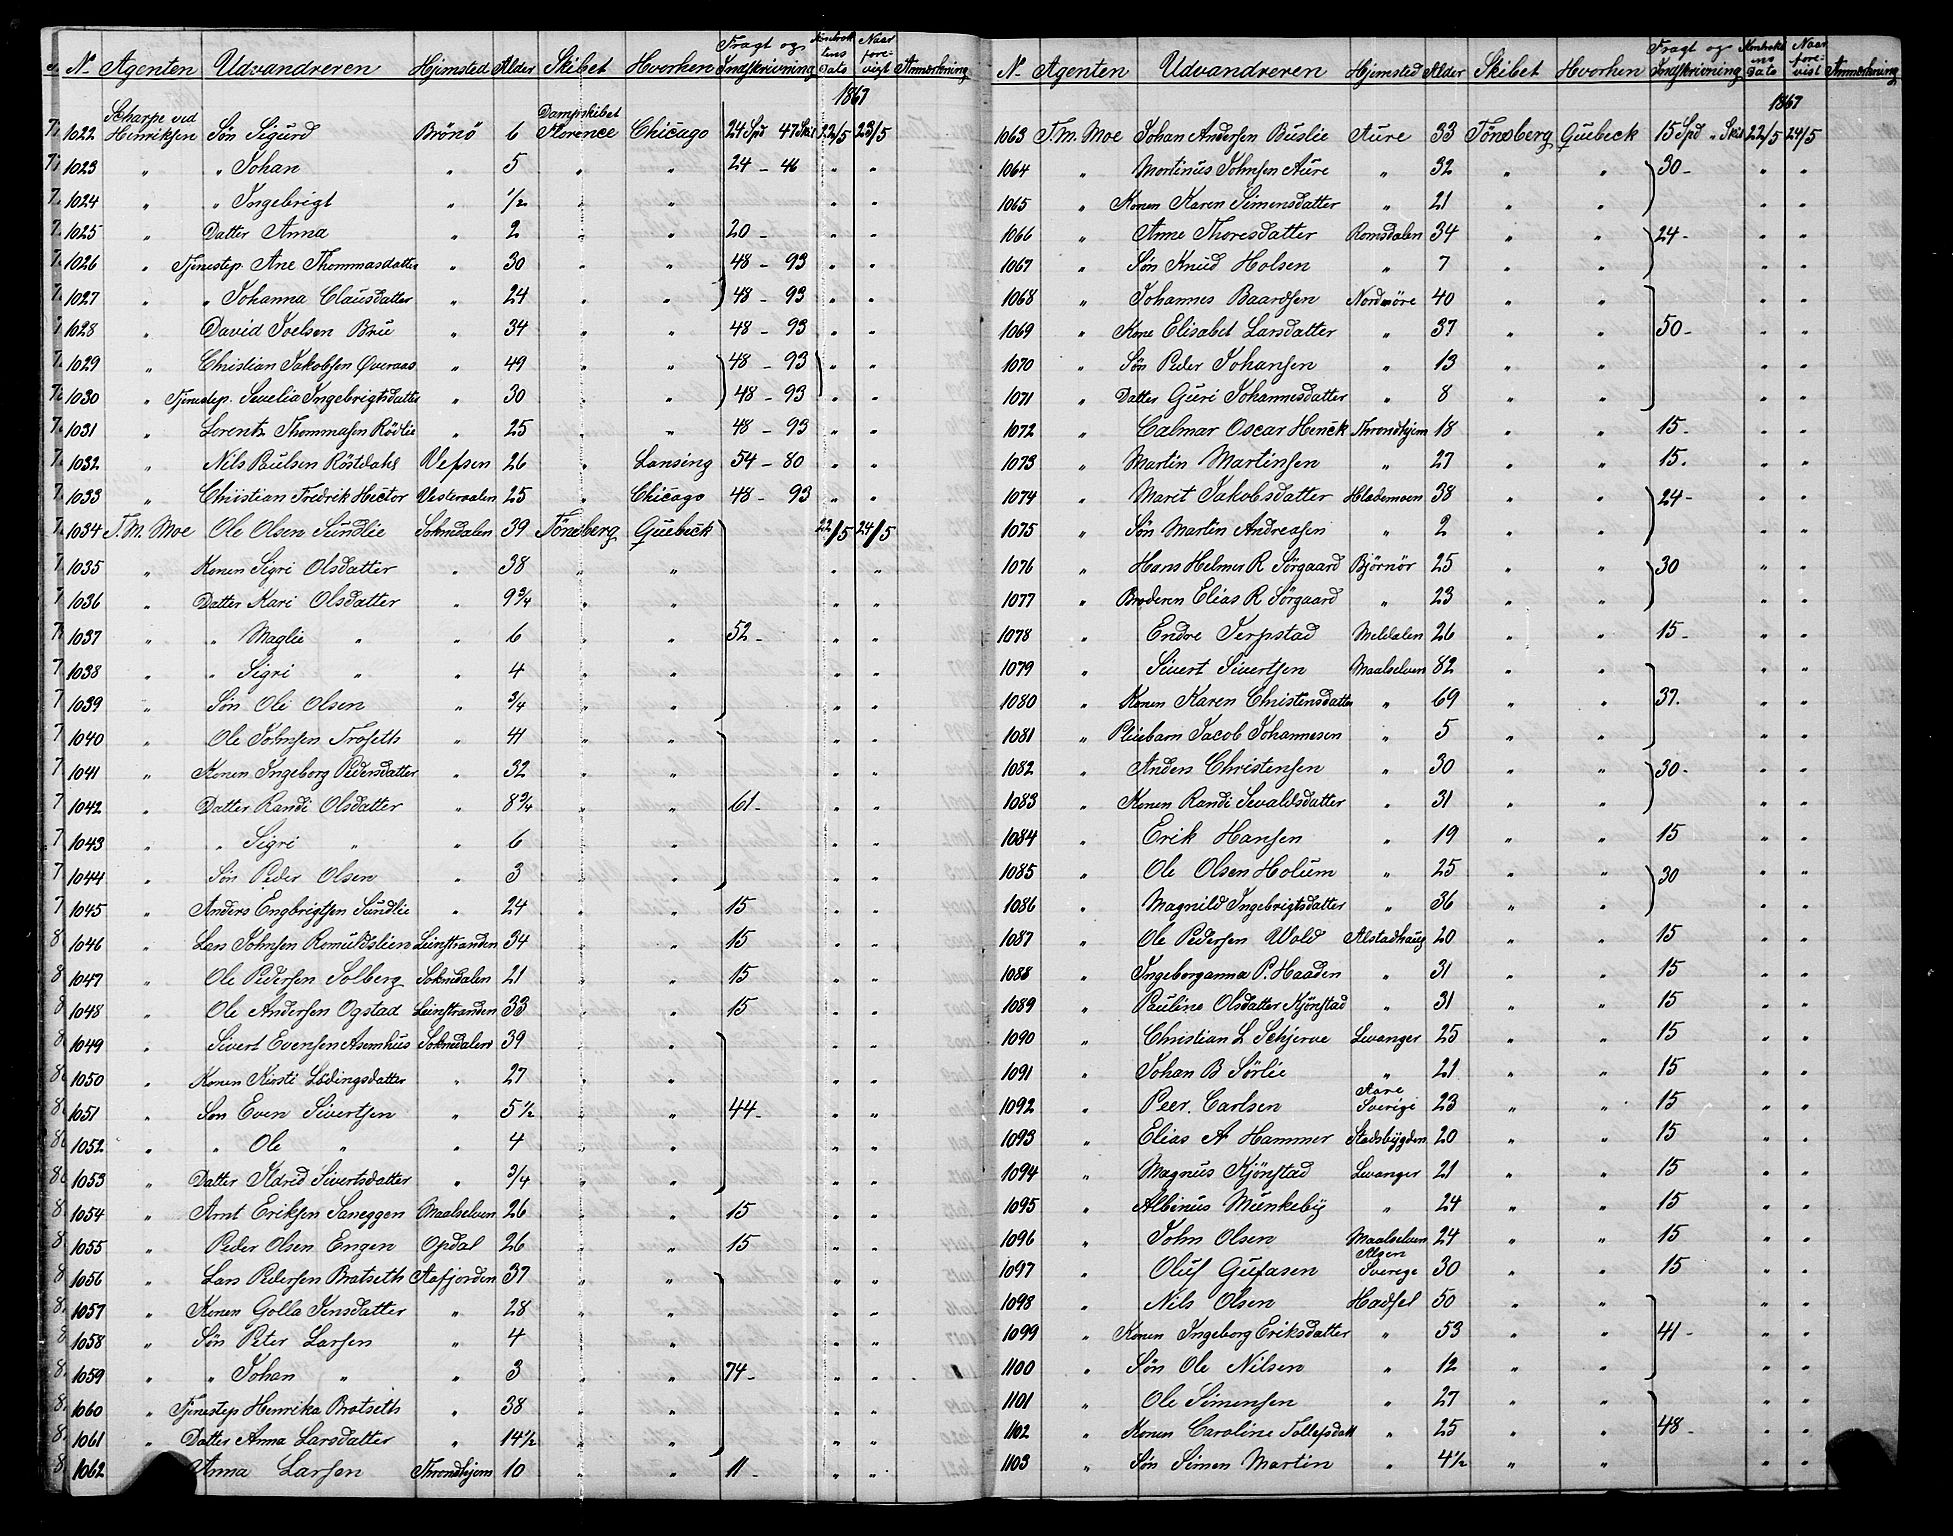 No Agenten Udvandreren Hjemsted Alder Skibet Hvorhen Fragt og Indskrivning Kontraktens Dato Naar forevist Anmærkning
1867
1022 Scharpe ved Henriksen Søn Sigurd Brönö 6 Dampskibet Florence Chicago 24 Spd 47 Skil 22/5 23/5
1023 " " Johan " 5 " " 24 - 46 " "
1024 " " Ingebrigt " 1/2 " " " "
1025 " Datter Anna " 2 " " 20 - " "
1026 " Tjenestep. Ane Thommasdatter " 30 " " 48 - 93 " "
1027 " " Johanna Clausdatter " 24 " " 48 - 93 " "
1028 " David Joelsen Bru " 34 " " 48 - 93 " "
1029 " Christian Jakobsen Øveraas " 49 " " 48 - 93 " "
1030 " Tjenestep. Sevelia Ingebrigtsdatter " 30 " " 48 - 93 " "
1031 " Lorentz Thommasen Rödlie " 25 " " 48 - 93 " "
1032 " Nils Paulsen Röstdahl Vefsen 26 " Lansing 54 - 80 " "
1033 " Christian Fredrik Hector Vesteraalen 25 " Chicago 48 - 93 " "
1034 T. M. Moe Ole Olsen Sundlie Soknedalen 39 Tönsberg Quebeck 22/5 24/5
1035 " Konen Sigri Olsdatter " 38 " " " "
1036 " Datter Kari Olsdatter " 9 3/4 " " " "
1037 " " Maglie " " 6 " " 52 - " "
1038 " " Sigri " " 4 " " " "
1039 " Søn Ole Olsen " 3/4 " " " "
1040 " Ole Johnsen Troseth " 41 " " " "
1041 " Konen Ingeborg Pedersdatter " 32 " " " "
1042 " Datter Randi Olsdatter " 8 3/4 " " 61 - " "
1043 " " Sigri " " 6 " " " "
1044 " Søn Peder Olsen " 3 " " " "
1045 " Anders Engbrigtsen Sundlie " 24 " " 15 " "
1046 " Lars Johnsen Romuldslien Leinstranden 34 " " 15 " "
1047 " Ole Pedersen Solberg Soknedalen 21 " " 15 " "
1048 " Ole Andersen Ogstad Leinstranden 33 " " 15 " "
1049 " Sivert Evensen Asemhus Soknedalen 39 " " " "
1050 " Konen Kirsti Lödingsdatter " 27 " " " "
1051 " Søn Even Sivertsen " 5 1/2 " " 44 - " "
1052 " " Ole " " 4 " " " "
1053 " Datter Ildrid Sivertsdatter " 3/4 " " " "
1054 " Arnt Eriksen Saneggen Maalselven 26 " " 15 " "
1055 " Peder Olsen Engen Opdal 26 " " 15 " "
1056 " Lars Pedersen Bratseth Aafjorden 37 " " " "
1057 " Konen Golla Jensdatter " 28 " " " "
1058 " Søn Peter Larsen " 4 " " " "
1059 " " Johan " " 3 " " 74 - " "
1060 " Tjenestep Henrika Bratseth " 38 " " " "
1061 " Datter Anna Larsdatter " 14 1/2 " " " "
1062 Anna Larsen Throndhjem 10 " " 11 - " "
No Agenten Udvandreren Hjemsted Alder Skibet Hvorhen Fragt og Indskrivning Kontraktens Dato Naar forevist Anmærkning
1867
1063 T. M. Moe Johan Andersen Buslie Aure 33 Tönsberg Quebeck 15 Spd " Skil 22/5 24/5
1064 " Martinus Johnsen Aure " 32 " " 30 - " "
1065 " Konen Karen Simonsdatter " 21 " " " "
1066 " Anne Thoresdatter Romsdalen 34 " " 24 - " "
1067 " Søn Knud Holsen " 7 " " " "
1068 " Johannes Baardsen Nordmöre 40 " " " "
1069 " Kone Elisabet Larsdatter " 37 " " 50 - " "
1070 " Søn Peder Johansen " 13 " " " "
1071 " Datter Guri Johannesdatter " 8 " " " "
1072 " Calmar Oscar Henck Throndhjem 18 " " 15 - " "
1073 " Martin Martinsen " 27 " " 15. " "
1074 " Marit Jakobsdatter Hlademoen 38 " " 24 - " "
1075 " Søn Martin Andreasen " 2 " " " "
1076 " Hans Helmer R Sørgaard Björnör 25 " " 30 " "
1077 " Broderen Elias R Sørgaard " 23 " " " "
1078 " Endre Jerpstad Meldalen 26 " " 15 - " "
1079 " Sivert Sivertsen Maalselven 82 " " " "
1080 " Konen Karen Christensdatter " 69 " " 37. " "
1081 " Pleiebarn Jacob Johannesen " 5 " " " "
1082 " Anders Christensen " 30 " " 30 - " "
1083 " Konen Randi Sevaldsdatter " 31 " " " "
1084 " Erik Hansen " 19 " " 15 " "
1085 " Ole Olsen Holum " 25 " " 30 " "
1086 " Magnild Ingebrigtsdatter " 36 " " " "
1087 " Ole Pedersen Wold Alstadhaug 20 " " 15 " "
1088 " Ingeborganna P. Haaden " 31 " " 15 " "
1089 " Pauline Olsdatter Kjönstad " 31 " " 15 " "
1090 " Christian L Schjerve Levanger 25 " " 15 " "
1091 " Johan B Sørlie " 21 " " 15 " "
1092 " Peer. Carlsen Aare Sverige 23 " " 15 " "
1093 " Elias A Hammer Stadsbygden 20 " " 15 " "
1094 " Magnus Kjönstad Levanger 21 " " 15 " "
1095 " Albinus Munkeby " 24 " " 15 " "
1096 " John Olsen Maalselven 24 " " 15 " "
1097 " Oluf Gufasen Alsen Sverege 30 " " 15 " "
1098 " Nils Olsen Hadsel 50 " " " "
1099 " Konen Ingeborg Eriksdatter " 53 " " 41 - " "
1100 " Søn Ole Nilsen " 12 " " " "
1101 " Ole Simensen " 27 " " " "
1102 " Konen Caroline Tollefsdatt " 25 " " 48 - " "
1103 " Søn Simen Martin " 4 1/2 " " " "